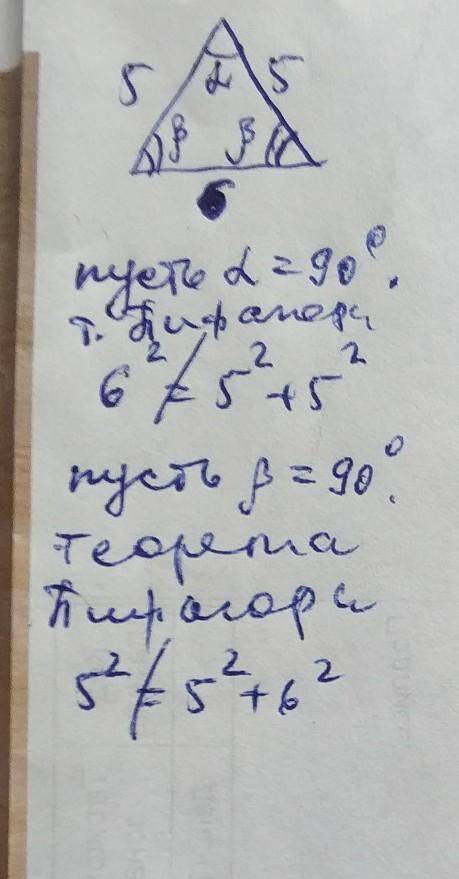 5 α 5
β β
6
пусть α = 90°.
т. Пифагора
6² ≠ 5² + 5²
пусть β = 90°.
Теорема
Пифагора
5² ≠ 5² + 6²